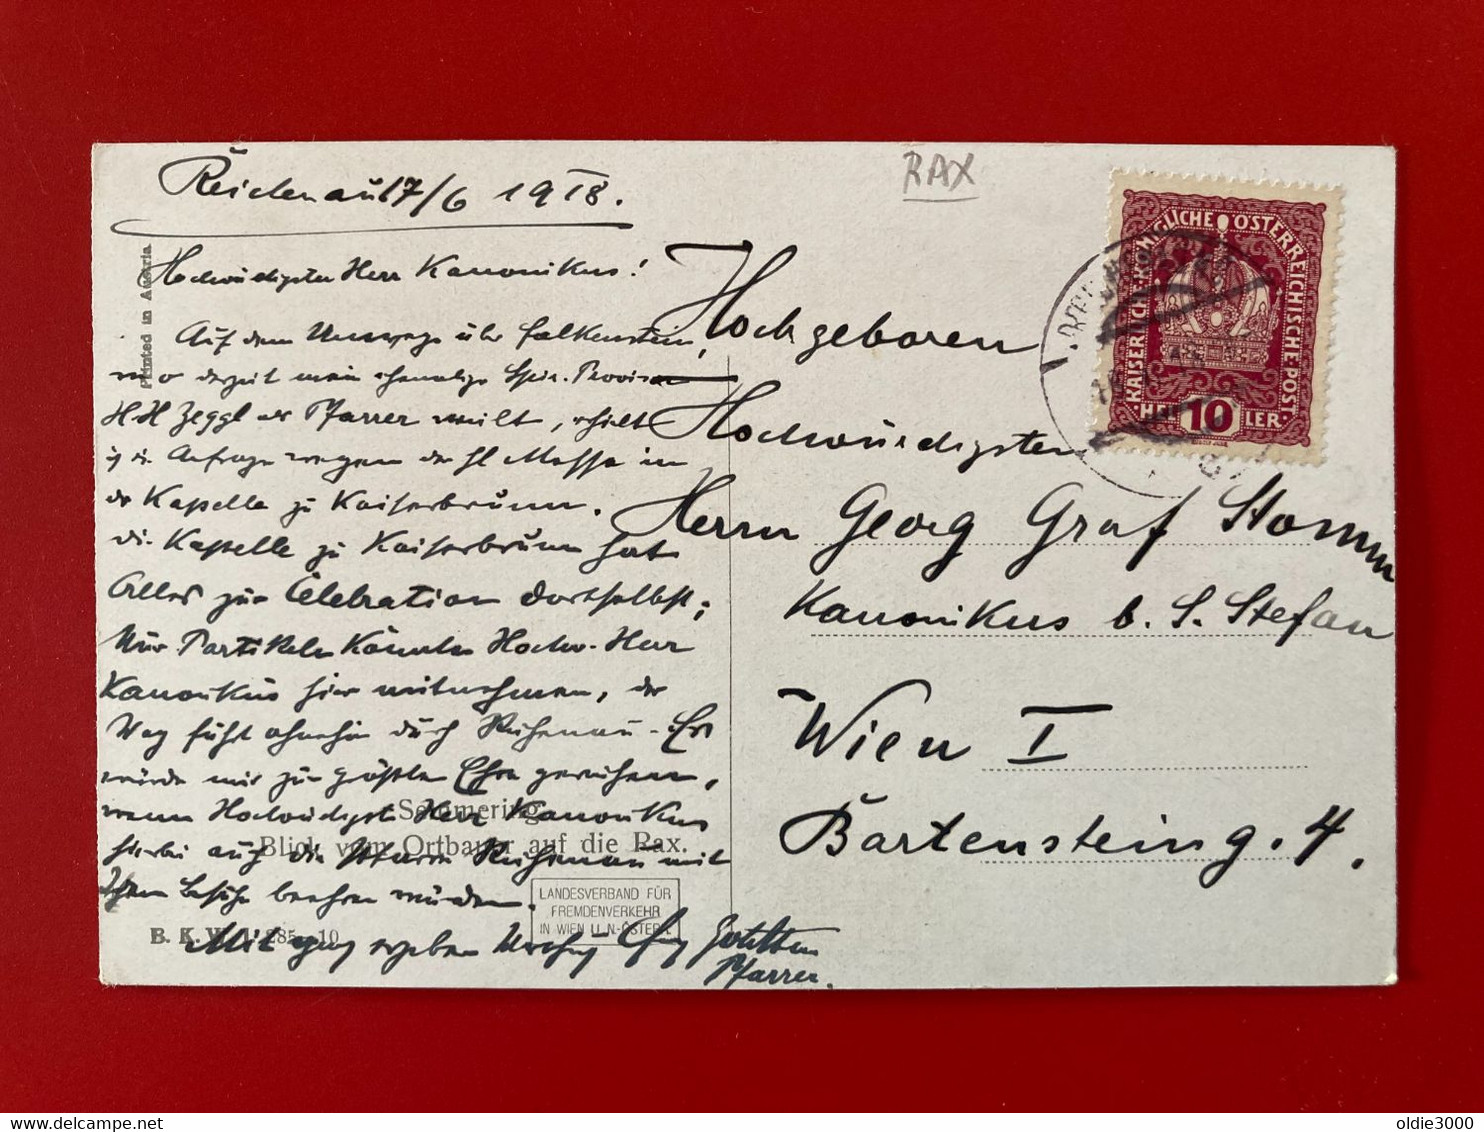 RAX
Reichenau 17/6 1918.
Hochwürdigster Herr Kanonikus!
Auf dem Umwege über Falkenstein,
wo derzeit mein ehemalige Provisor
HH Zeggl als Pfarrer weilt, erhielt
ich d. Anfrage wegen der hl Messe in
der Kapelle zu Kaiserbrunn.
Die Kapelle zu Kaiserbrunn hat
Alles zur Celebration dortselbst;
Nur Partikeln könnten Hochw. Herr
Kanonikus hier mitnehmen, der
Weg führt ohnehin durch Reichenau. Es
würde mir zur größten Ehre gereichen,
wenn Hochwürdigst Herr Kanonikus
hierbei auch die Pfarre Reichenau mit
Ihrem Besuche beehren würden.
Mit ganz ergeben
Pfarrer.
Printed in Austria.
Semmering
Blick vom Ortbauer auf die Rax.
B. K. W. I. 285-10
LANDESVERBAND FÜR
FREMDENVERKEHR
IN WIEN U. N-ÖSTERR.
KAISERLICH-KÖNIGLICHE ÖSTERREICHISCHE POST
HELLER
10
Hochgeboren
Hochwürdigsten
Herrn Georg Graf Stomm
Kanonikus b. S. Stefan
Wien I
Bartensteing. 4.
oldie3000